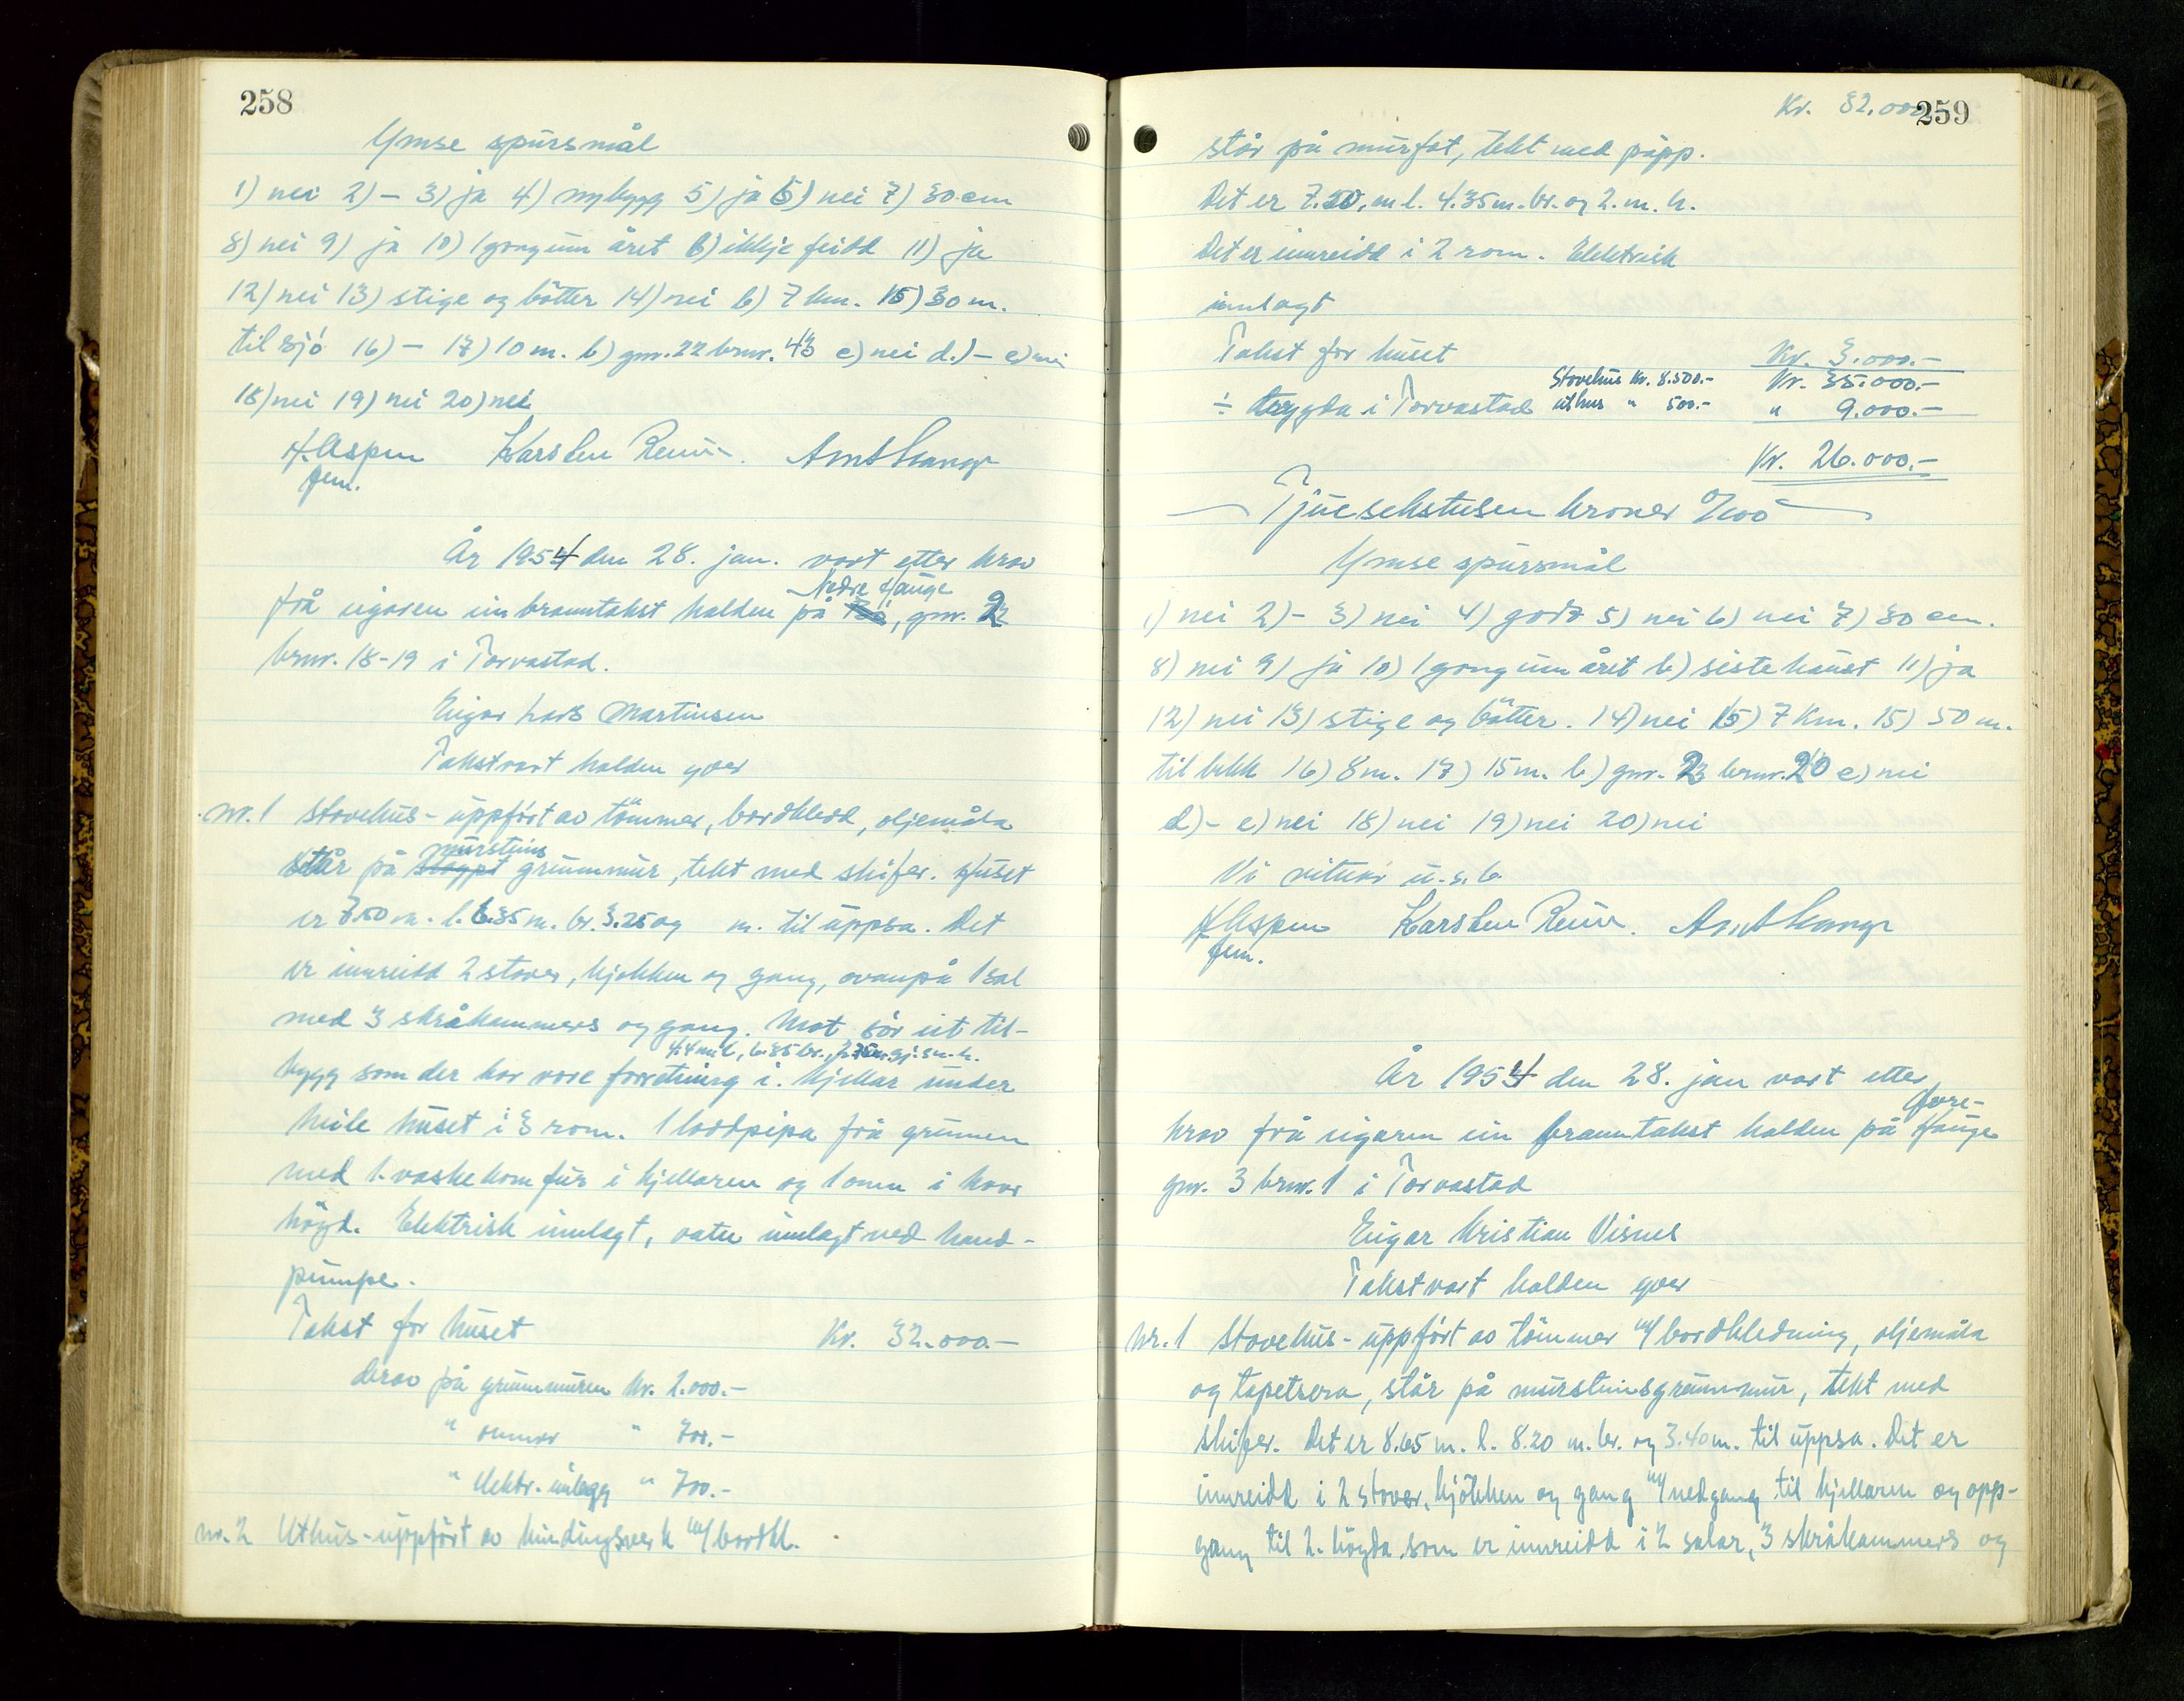 258
Ymse spursmål
1) nei 2) – 3) ja 4) nybygg 5) ja 6) nei 7) 30 cm
8) nei 9) ja 10) 1 gong um året b) ikkje feidd 11) ja
12) nei 13) stige og bötter 14) nei b) 7 km. 15) 30 m.
til sjö 16) – 17) 10 m. b) gnr. 22 brnr. 43 c) nei d.) – e) nei
18) nei 19) nei 20) nei
H. Aspen Karsten Reiur.
fem.
År 1954 den 28. jan. vart etter krav
Nedre Hauge
frå eigaren um branntakst halden på , gnr. 2
brnr. 18-19 i Torvastad.
Eigar Lars Martinsen
Takst vart halden yver
nr. 1 Stovehus - uppfört av tömmer, bordkledd, oljemåla
mursteins
står på støypt grunnmur, tekt med skifer. Huset
er 7.50 m. l. 6.35 m. br. 3.25 og m. til uppsa. Det
er innreidd 2 stover, kjøkken og gang, ovanpå 1 sal
med 3 skråkammers og gang. Mot sör eit til-
4.4 m l, 6.35 br., gj. sn. h.
bygg som der har vore forretning i. Kjellar under
heile huset i 3 rom. 1 loddpipa frå grunnen
med 1. vaskekomfur i kjellaren og 1 omn i kvar
högd. Elektrisk innlagt, vatn innlagt ved hand-
pumpe.
Takst for huset Kr. 32.000.–
derav på grunnmuren kr. 2.000.–
" omner " 700.–
" Elektr. inlegg " 700.–
nr. 2 Uthus - uppfört av bindingsverk m/ bordkl.
Kr. 32.000
259
står på murfot, tekt med papp.
Det er 7.20. m l. 4.35 m. br. og 2. m. h.
Det er innreidd i 2 rom. Elektrisk
innlagt
Takst for huset Kr. 3.000.–
Stovehus Kr. 8.500.– Kr. 35.000.–
÷ trygda i Torvastad uthus " 500.– " 9.000.–
Kr. 26.000.–
Tjuesekstusen kroner 0/100
Ymse spursmål
1) nei 2) – 3) nei 4) godt 5) nei 6) nei 7) 30 cm.
8) nei 9) ja 10) 1 gong um året b) siste haust 11) ja
12) nei 13) stige og bötter. 14) nei b) 7 km. 15) 50 m.
til bekk 16) 8 m. 17) 15 m. b) gnr. 2 brnr. 20 c) nei
d) – e) nei 18) nei 19) nei 20) nei
Vi vitnar u.s.b
H Aspen Karsten Reiur.
fem.
År 1954 den 28. jan vart etter
Övre-
krav frå eigaren um branntakst halden på Hauge
gnr. 3 brnr. 1 i Torvastad
Eigar Kristian Visnes
Takst vart halden yver
nr. 1 Stovehus - uppfört av tömmer m/ bordkledning, oljemåla
og tapetsera, står på mursteinsgrunnmur, tekt med
skifer. Det er 8.65 m. l. 8.20 m. br. og 3.40 m. til uppsa. Det er
innreidd i 2 stover, kjökken og gang m/ nedgang til kjellaren og opp-
gang til 2. högda som er innreidd i 2 salar, 3 skråkammers og